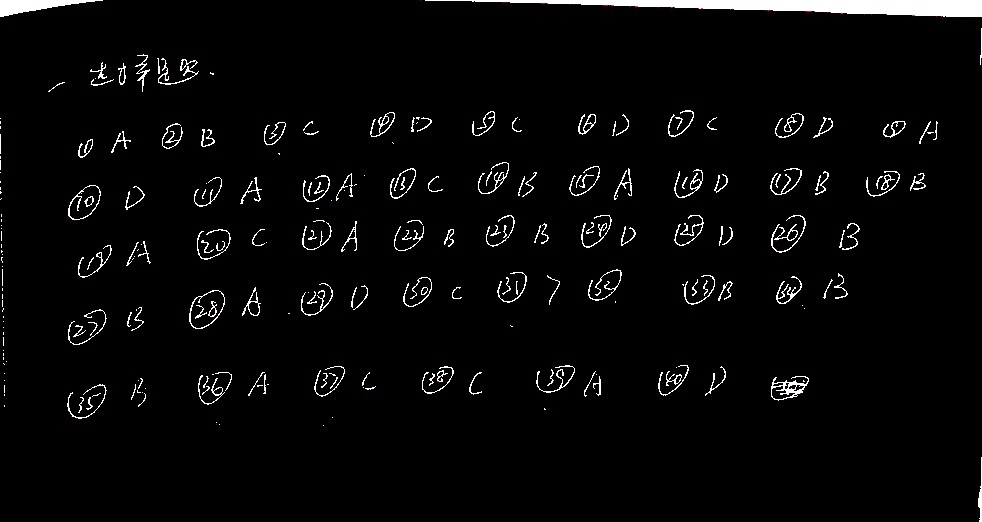 一
① A ② B ③ C ④ D ⑤ C ⑥ D ⑦ C ⑧ D ⑨ A
⑩ D ⑪ A ⑫ A ⑬ C ⑭ B ⑮ A ⑯ D ⑰ B ⑱ B
⑲ A ⑳ C ㉑ A ㉒ B ㉓ B ㉔ D ㉕ D ㉖ B
㉗ B ㉘ A ㉙ D ㉚ C ㉛ ㉜ ㉝ B ㉞ B
㉟ B ㊱ A ㊲ C ㊳ C ㊴ A ㊵ D